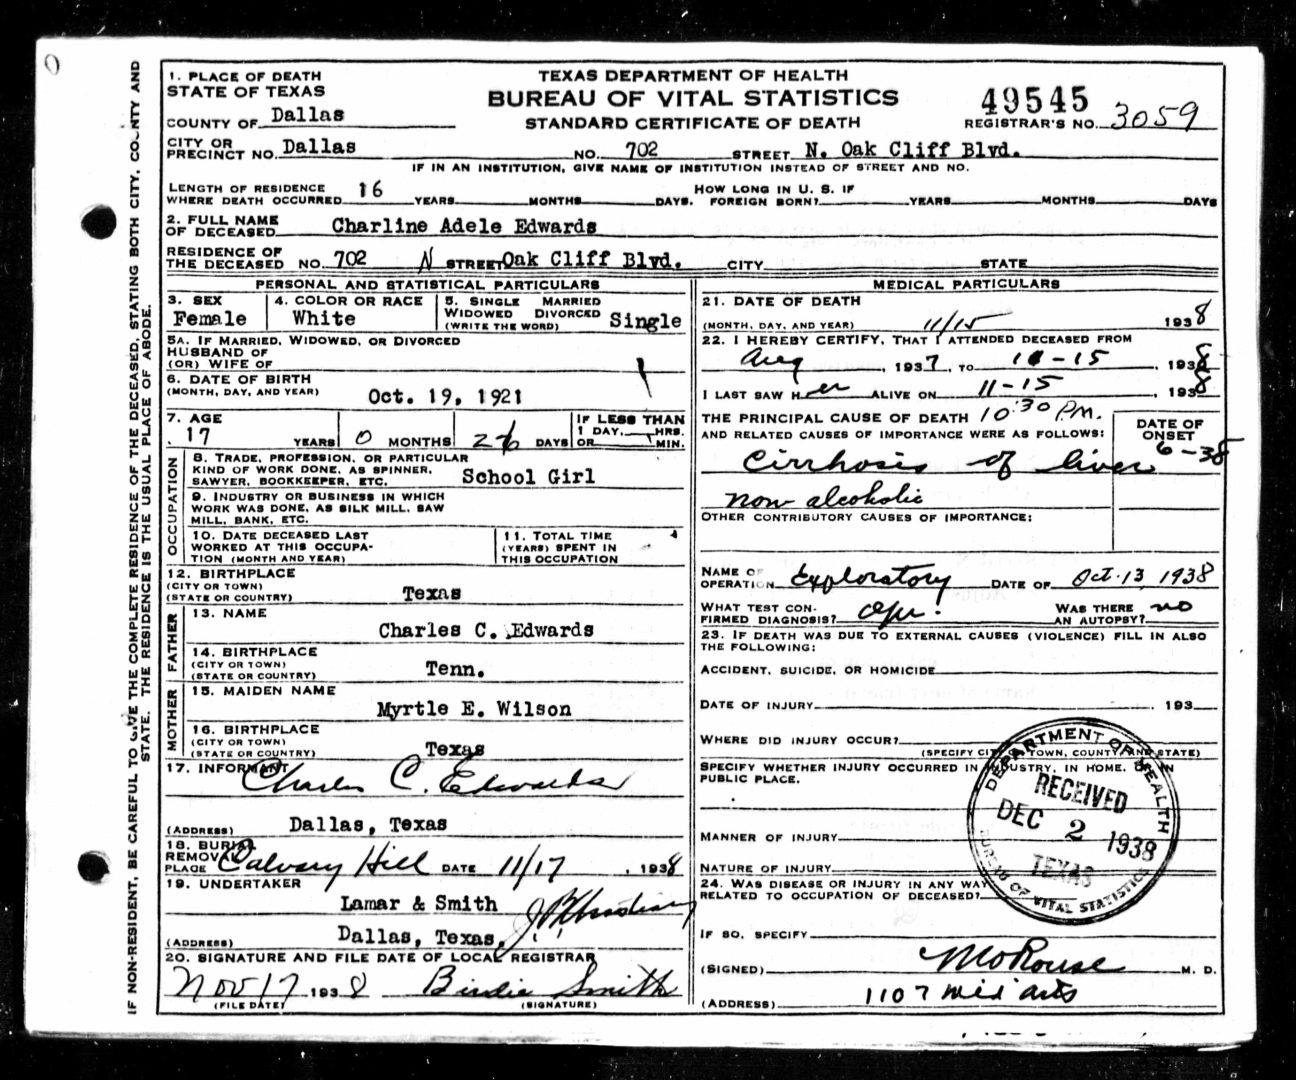 1. PLACE OF DEATH
STATE OF TEXAS
COUNTY OF Dallas
TEXAS DEPARTMENT OF HEALTH
BUREAU OF VITAL STATISTICS
STANDARD CERTIFICATE OF DEATH
49545
REGISTRAR'S NO. 3059
CITY OR PRECINCT NO. Dallas NO. 702 STREET N. Oak Cliff Blvd.
IF IN AN INSTITUTION, GIVE NAME OF INSTITUTION INSTEAD OF STREET AND NO.
LENGTH OF RESIDENCE WHERE DEATH OCCURRED 16 YEARS MONTHS DAYS. HOW LONG IN U. S. IF FOREIGN BORN? YEARS MONTHS DAYS
2. FULL NAME OF DECEASED Charline Adele Edwards
RESIDENCE OF THE DECEASED NO. 702 N STREET Oak Cliff Blvd. CITY STATE
PERSONAL AND STATISTICAL PARTICULARS
3. SEX Female
4. COLOR OR RACE White
5. SINGLE MARRIED WIDOWED DIVORCED (WRITE THE WORD) Single
5A. IF MARRIED, WIDOWED, OR DIVORCED
HUSBAND OF
(OR) WIFE OF
6. DATE OF BIRTH
(MONTH, DAY, AND YEAR) Oct. 19, 1921
7. AGE
17 YEARS 0 MONTHS 26 DAYS IF LESS THAN 1 DAY, HRS. OR MIN.
OCCUPATION
8. TRADE, PROFESSION, OR PARTICULAR
KIND OF WORK DONE, AS SPINNER,
SAWYER, BOOKKEEPER, ETC. School Girl
9. INDUSTRY OR BUSINESS IN WHICH
WORK WAS DONE, AS SILK MILL, SAW
MILL, BANK, ETC.
10. DATE DECEASED LAST
WORKED AT THIS OCCUPA-
TION (MONTH AND YEAR)
11. TOTAL TIME
(YEARS) SPENT IN
THIS OCCUPATION
12. BIRTHPLACE
(CITY OR TOWN)
(STATE OR COUNTRY) Texas
FATHER
13. NAME
Charles C. Edwards
14. BIRTHPLACE
(CITY OR TOWN)
(STATE OR COUNTRY) Tenn.
MOTHER
15. MAIDEN NAME
Myrtle E. Wilson
16. BIRTHPLACE
(CITY OR TOWN)
(STATE OR COUNTRY) Texas
17. INFORMANT
Charles C. Edwards
(ADDRESS) Dallas, Texas
18. BURIAL
REMOVAL
PLACE Calvary Hill DATE 11/17, 1938
19. UNDERTAKER
Lamar & Smith
(ADDRESS) Dallas, Texas.
20. SIGNATURE AND FILE DATE OF LOCAL REGISTRAR
Nov 17 1938 Birdie Smith
(FILE DATE) (SIGNATURE)
MEDICAL PARTICULARS
21. DATE OF DEATH
(MONTH, DAY, AND YEAR) 11/15 1938
22. I HEREBY CERTIFY, THAT I ATTENDED DECEASED FROM
Aug, 1937, TO 11-15, 1938
I LAST SAW HER ALIVE ON 11-15, 1938
THE PRINCIPAL CAUSE OF DEATH 10:30 P.M.
AND RELATED CAUSES OF IMPORTANCE WERE AS FOLLOWS:
DATE OF ONSET
6-38
Cirrhosis of liver
non alcoholic
OTHER CONTRIBUTORY CAUSES OF IMPORTANCE:
NAME OF OPERATION Exploratory DATE OF Oct. 13, 1938
WHAT TEST CON-
FIRMED DIAGNOSIS? Opr. WAS THERE AN AUTOPSY? no
23. IF DEATH WAS DUE TO EXTERNAL CAUSES (VIOLENCE) FILL IN ALSO
THE FOLLOWING:
ACCIDENT, SUICIDE, OR HOMICIDE
DATE OF INJURY , 193
WHERE DID INJURY OCCUR?
(SPECIFY CITY OR TOWN, COUNTY AND STATE)
SPECIFY WHETHER INJURY OCCURRED IN INDUSTRY, IN HOME, OR IN
PUBLIC PLACE.
MANNER OF INJURY
NATURE OF INJURY
24. WAS DISEASE OR INJURY IN ANY WAY
RELATED TO OCCUPATION OF DECEASED?
IF SO, SPECIFY
(SIGNED) M O Rouse M. D.
(ADDRESS) 1107 Med arts
DEPARTMENT OF HEALTH
RECEIVED
DEC 2 1938
TEXAS
BUREAU OF VITAL STATISTICS
IF NON-RESIDENT, BE CAREFUL TO GIVE THE COMPLETE RESIDENCE OF THE DECEASED, STATING BOTH CITY, COUNTY AND
STATE. THE RESIDENCE IS THE USUAL PLACE OF ABODE.